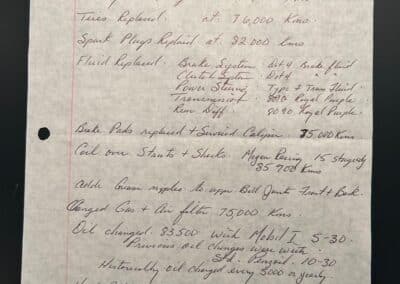 Tires Replaced at 76,000 Kms
Spark Plugs Replaced at 82000 kms
Fluid Replaced. Brake System Dot 4 Brake fluid
Clutch System Dot 4 " "
Power Steering Type + Tran Fluid
Transmission Royal Purple
Rear Diff. 80 90 Royal Purple
Brake Pads replaced + Serviced Caliper 75,000 Kms
Coil over Struts + Shocks Megan Racing 15
85 700 Kms
Adde Grease nipples to upper Ball Joints Front + Back
Changed Gas + Air filter 75,000 Kms.
Oil changed. 83,500 with Mobil 1 5-30.
Previous oil changes were with
Std. Penzoil 10-30
Historically oil changed every 5000 or yearly.